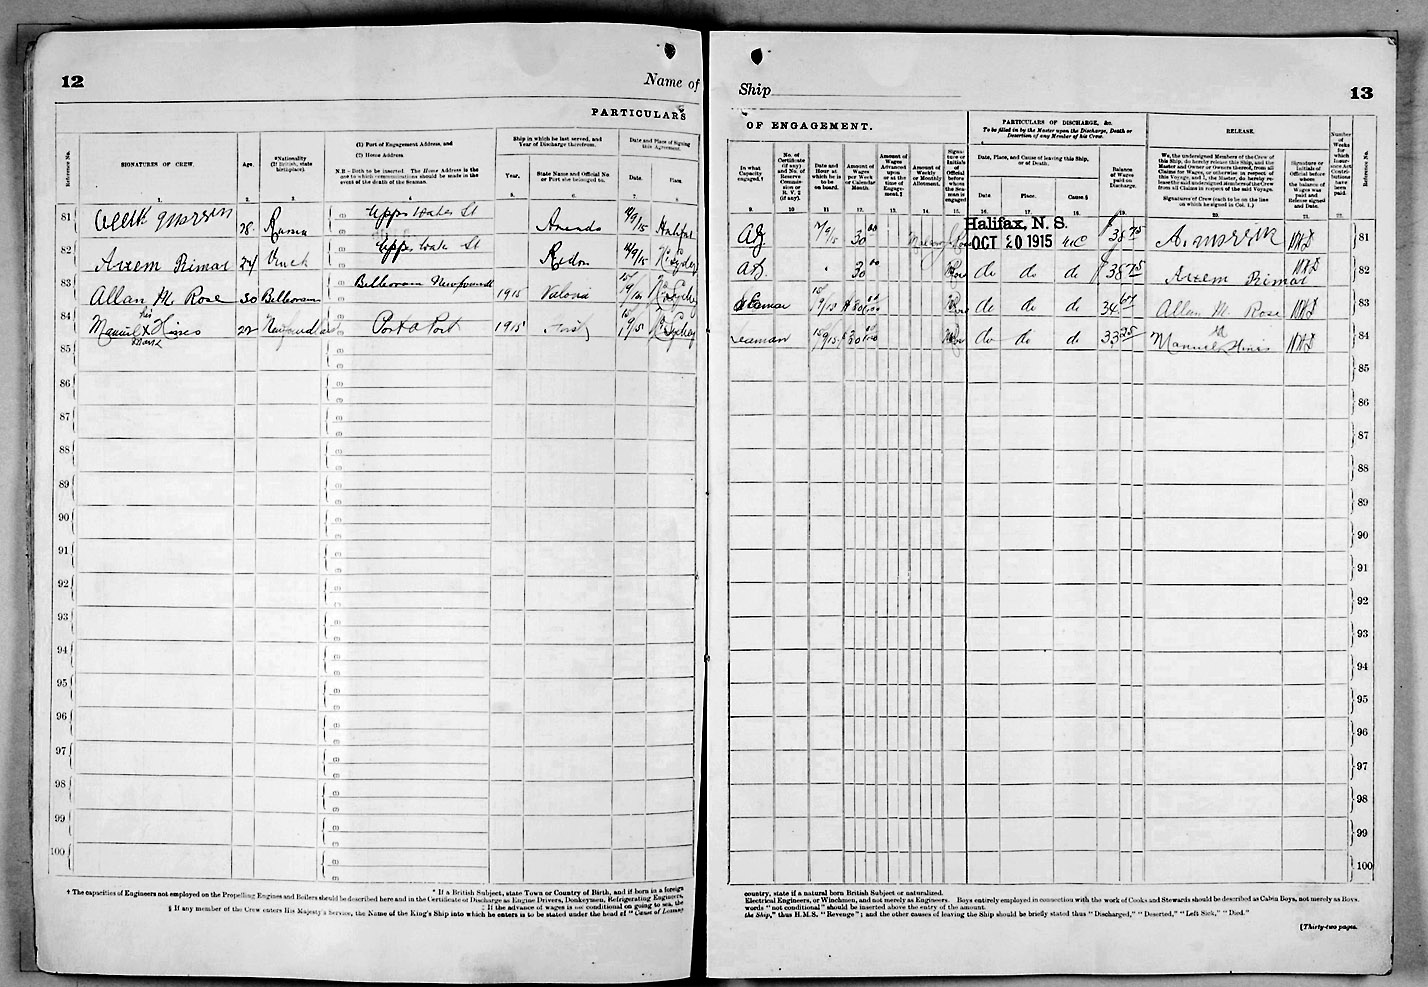 12
Name of
Ship
13
PARTICULARS
OF ENGAGEMENT.
PARTICULARS OF DISCHARGE, &c.
To be filled in by the Master upon the Discharge, Death or
Desertion of any Member of his Crew.
RELEASE.
Reference No.
SIGNATURES OF CREW.
Age.
*Nationality
(If British, state
birthplace).
(1) Port of Engagement Address, and
(2) Home Address
N.B.—Both to be inserted. The Home Address is the
one to which communications should be made in the
event of the death of the Seaman.
Ship in which he last served, and
Year of Discharge therefrom.
Year.
State Name and Official No
or Port she belonged to.
Date and Place of Signing
this Agreement.
Date.
Place.
In what
Capacity
engaged.†
No. of
Certificate
(if any)
and No. of
Reserve
Commis-
sion or
R. V. 2
(if any).
Date and
Hour at
which he is
to be
on board.
Amount of
Wages
per Week
or Calendar
Month.
Amount of
Wages
Advanced
upon
or at the
time of
Engage-
ment.‡
Amount of
Weekly
or Monthly
Allotment.
Signa-
ture or
Initials
of
Official
before
whom
the Sea-
man is
engaged
Date, Place, and Cause of leaving this Ship,
or of Death.
Date
Place.
Cause §
Balance
of Wages
paid on
Discharge.
We, the undersigned Members of the Crew of
this Ship, do hereby release this Ship, and the
Master and Owner or Owners thereof, from all
Claims for Wages, or otherwise in respect of
this Voyage, and I, the Master, do hereby re-
lease the said undersigned Members of the Crew
from all Claims in respect of the said Voyage.
Signatures of Crew (each to be on the line
on which he signed in Col. 1.)
Signature or
Initials of
Official before
whom
the balance of
Wages was
paid and
Release signed
and Date.
Number
of
Weeks
for
which
Insur-
ance Act
Contrib-
utions
have
been
paid.
Reference No.
1. 2. 3. 4. 5. 6. 7. 8.
9. 10 11 12. 13. 14. 15. 16. 17. 18. 19. 20. 21. 22.
81 28. Upper Water St 14/9/15 Halifax
30 00 Halifax, N. S. OCT 20 1915 38 75 81
82 Arzem Rimar 24 Upper Water St 14/9/15
30 00 do do do 38 75 Arzem Rimar 82
83 Allan M Rose 30 Belleoram Belleoram Newfound 1915
Seaman do do do 34 Allan M. Rose 83
84 Manuel X Hines 22 Newfoundland Port a Port 1915
his
mark
Seaman do do do 33 25 Manuel Hinis 84
85 85
86 86
87 87
88 88
89 89
90 90
91 91
92 92
93 93
94 94
95 95
96 96
97 97
98 98
99 99
100 100
* If a British Subject, state Town or Country of Birth, and if born in a foreign
† The capacities of Engineers not employed on the Propelling Engines and Boilers should be described here and in the Certificate of Discharge as Engine Drivers, Donkeymen, Refrigerating Engineers,
‡ If the advance of wages is not conditional on going to sea, the
§ If any member of the Crew enters His Majesty's Service, the Name of the King's Ship into which he enters is to be stated under the head of "Cause of Leaving
country, state if a natural born British Subject or naturalized.
Electrical Engineers, or Winchmen, and not merely as Engineers. Boys entirely employed in connection with the work of Cooks and Stewards should be described as Cabin Boys, not merely as Boys.
words "not conditional" should be inserted above the entry of the amount.
the Ship," thus H.M.S. "Revenge"; and the other causes of leaving the Ship should be briefly stated thus "Discharged," "Deserted," "Left Sick," "Died."
[Thirty-two pages.